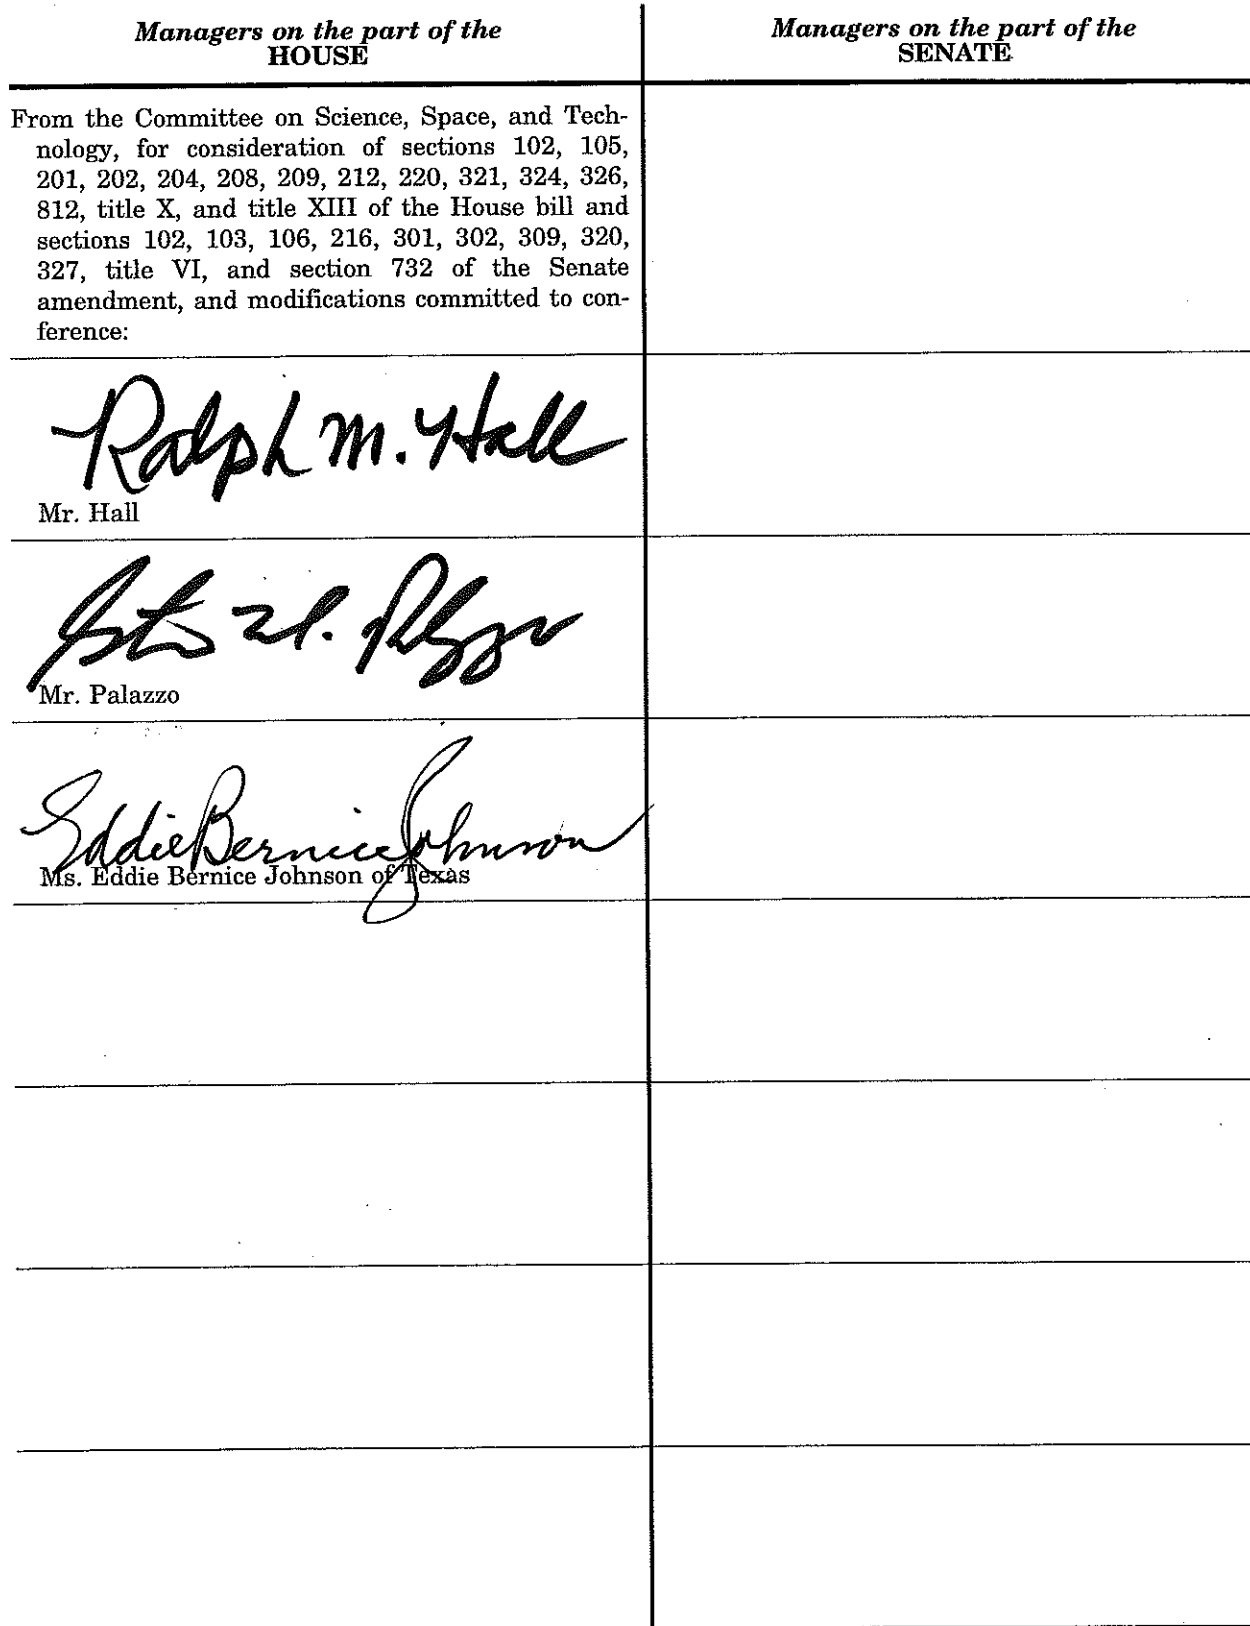 Managers on the part of the
HOUSE
Managers on the part of the
SENATE
From the Committee on Science, Space, and Tech-
nology, for consideration of sections 102, 105,
201, 202, 204, 208, 209, 212, 220, 321, 324, 326,
812, title X, and title XIII of the House bill and
sections 102, 103, 106, 216, 301, 302, 309, 320,
327, title VI, and section 732 of the Senate
amendment, and modifications committed to con-
ference:
Ralph M. Hall
Mr. Hall
Mr. Palazzo
Eddie Bernice Johnson
Ms. Eddie Bernice Johnson of Texas